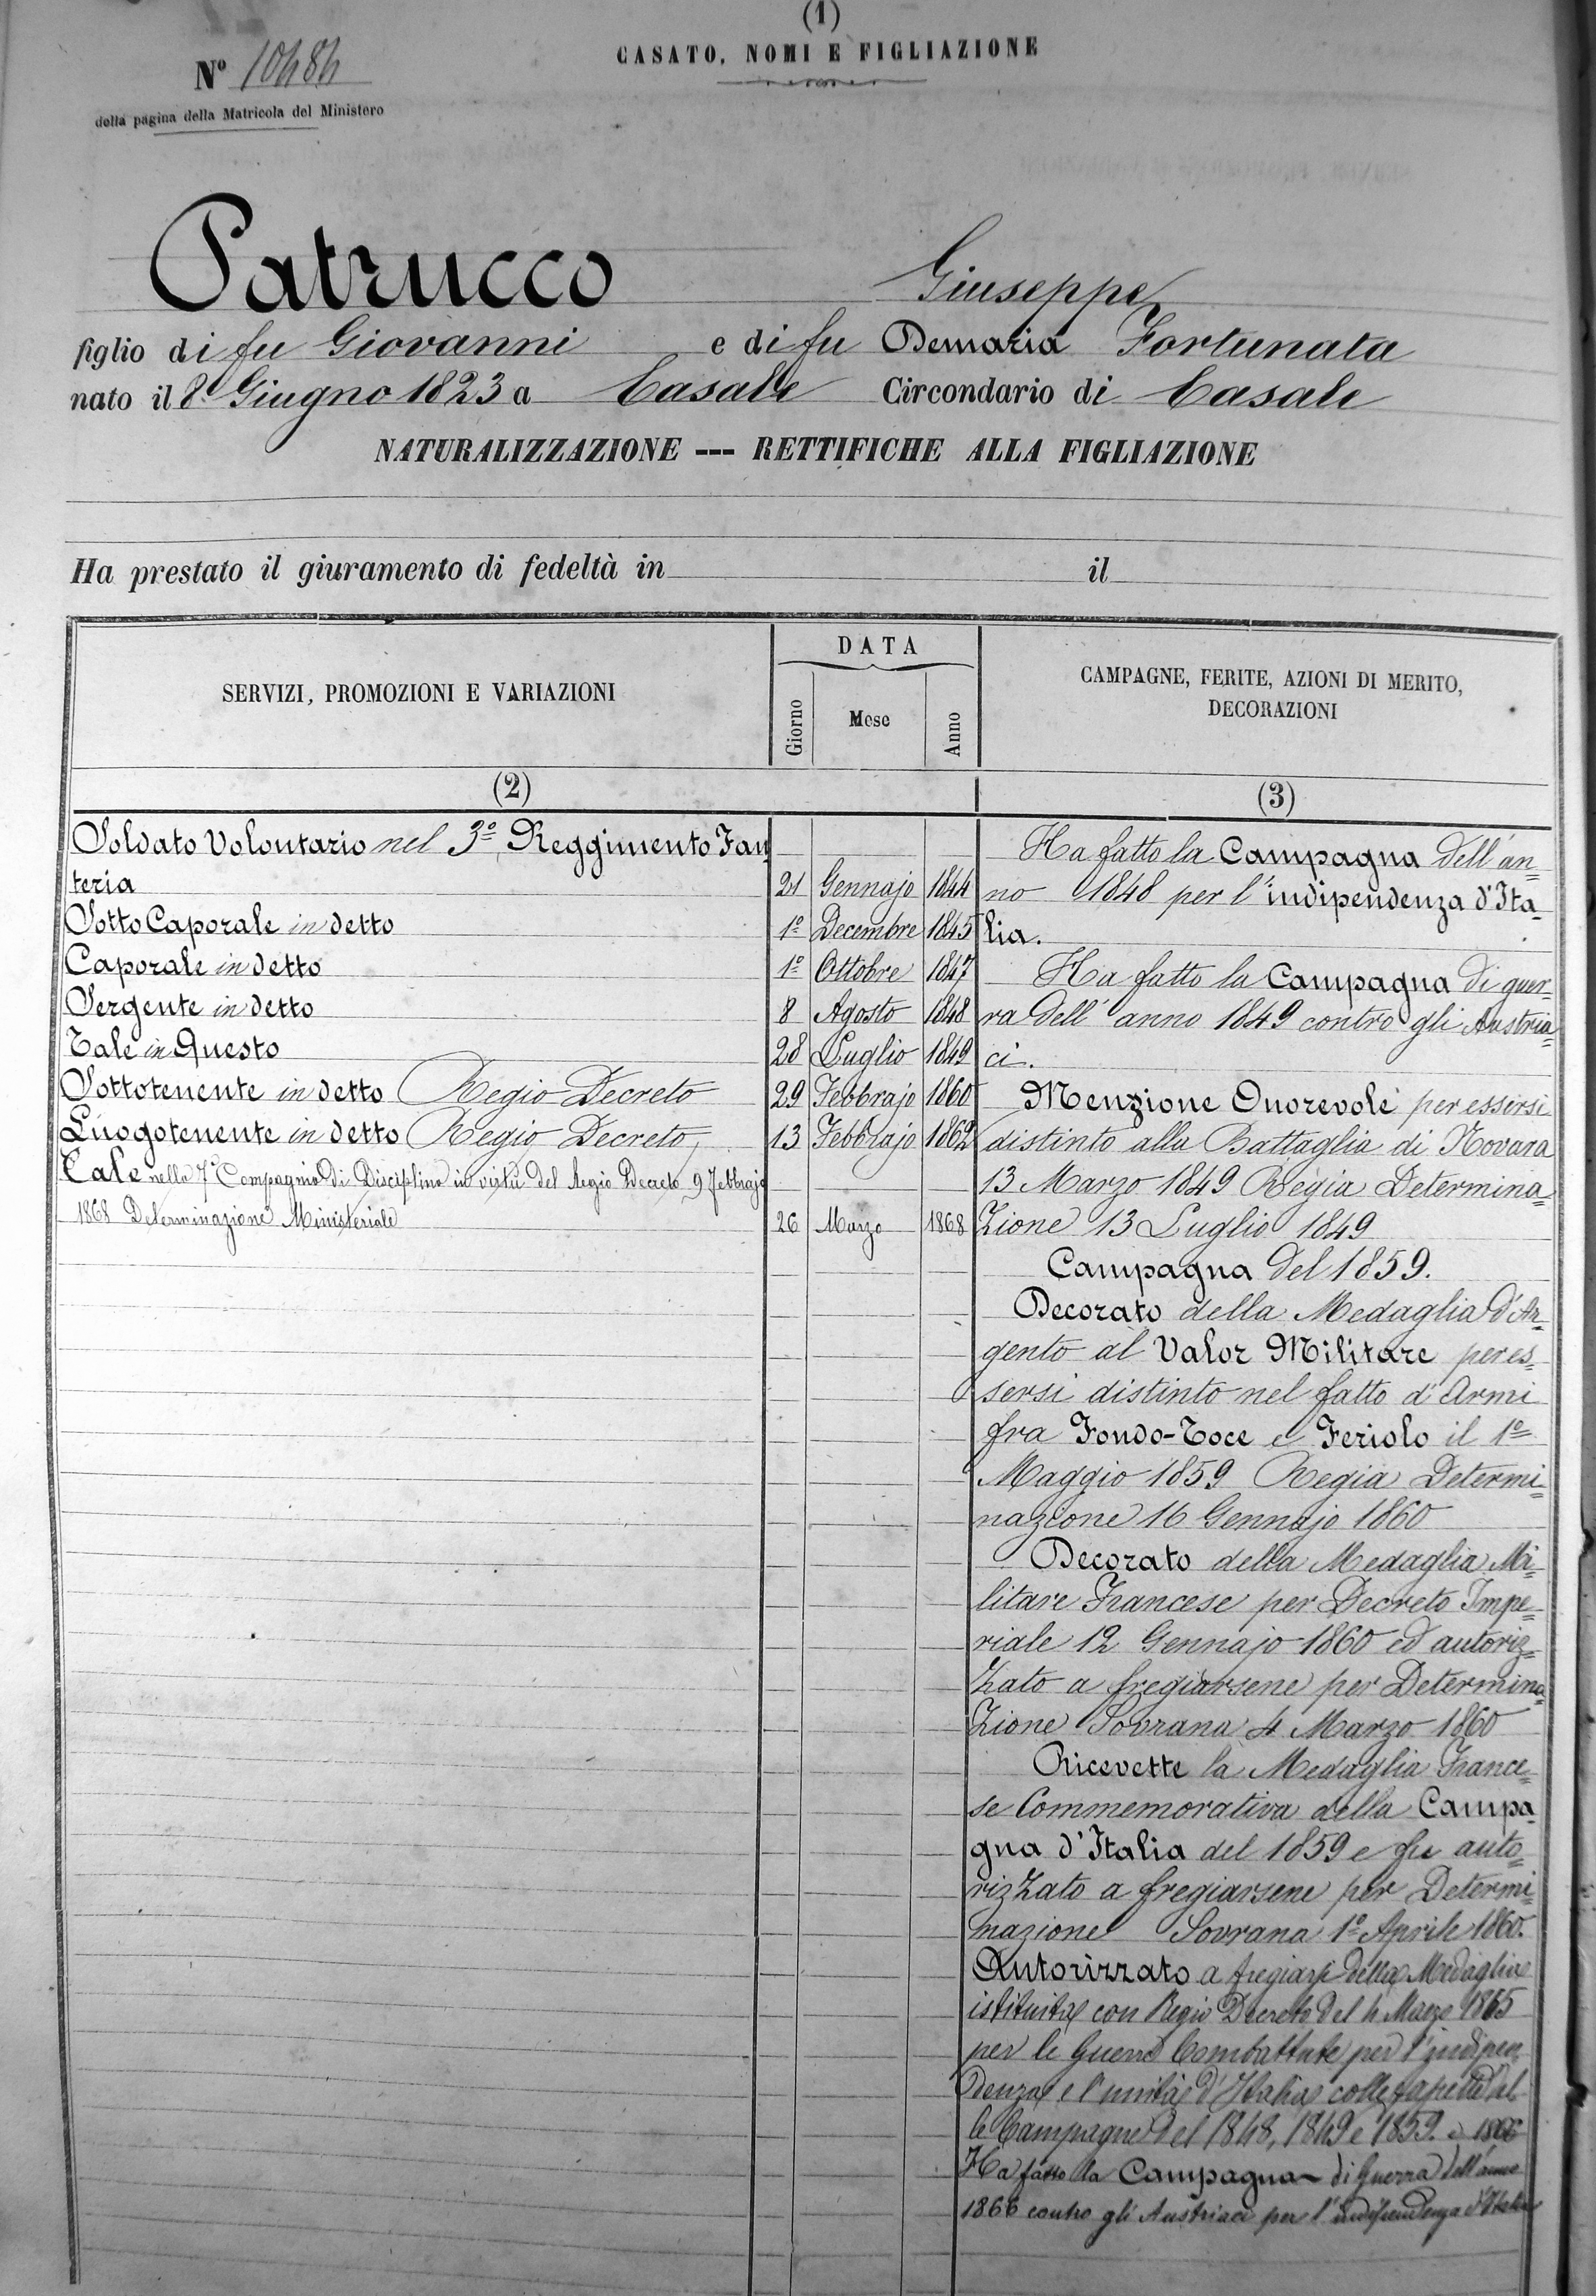 (1)
CASATO, NOMI E FIGLIAZIONE
Nº 10484
della pagina della Matricola del Ministero
Patrucco Giuseppe
figlio di fu Giovanni e di fu Demaria Fortunata
nato il 8 Giugno 1823 a Casale Circondario di Casale
NATURALIZZAZIONE --- RETTIFICHE ALLA FIGLIAZIONE
Ha prestato il giuramento di fedeltà in il
SERVIZI, PROMOZIONI E VARIAZIONI
DATA
Giorno Mese Anno
CAMPAGNE, FERITE, AZIONI DI MERITO,
DECORAZIONI
(2)
(3)
Soldato Volontario nel 3º Reggimento Fan
teria 21 Gennajo 1844
Sotto Caporale in detto 1º Decembre 1845
Caporale in detto 1º Ottobre 1847
Sergente in detto 8 Agosto 1848
Tale in Questo 28 Luglio 1849
Sottotenente in detto Regio Decreto 29 Febbrajo 1860
Luogotenente in detto Regio Decreto 13 Febbrajo 1862
Tale nella 7ª Compagnia di Disciplina in virtù del Regio Decreto 9 Febbrajo
1868 Determinazione Ministeriale 26 Marzo 1868
Ha fatto la Campagna dell'an=
no 1848 per l'indipendenza d'Ita=
lia.
Ha fatto la Campagna di guer=
ra dell'anno 1849 contro gli Austria=
ci.
Menzione Onorevole per essersi
distinto alla Battaglia di Novara
13 Marzo 1849 Regia Determina=
zione 13 Luglio 1849
Campagna del 1859.
Decorato della Medaglia d'Ar=
gento al Valor Militare per es=
sersi distinto nel fatto d'Armi
fra Fondo-Toce e Feriolo il 1º
Maggio 1859 Regia Determi=
nazione 16 Gennajo 1860
Decorato della Medaglia Mi=
litare Francese per Decreto Impe=
riale 12 Gennajo 1860 ed autoriz=
zato a fregiarsene per Determina=
zione Sovrana 4 Marzo 1860
Ricevette la Medaglia France=
se Commemorativa della Campa=
gna d'Italia del 1859 e fu auto=
rizzato a fregiarsene per Determi=
nazione Sovrana 1º Aprile 1860.
Autorizzato a fregiarsi della Medaglia
istituita con Regio Decreto del 4 Marzo 1865
per le Guerre Combattute per l'indipen=
denza e l'unità d'Italia colle fascette del=
le Campagne del 1848, 1849 e 1859. e 1866
Ha fatto la Campagna di Guerra dell'anno
1866 contro gli Austriaci per l'indipendenza d'Italia